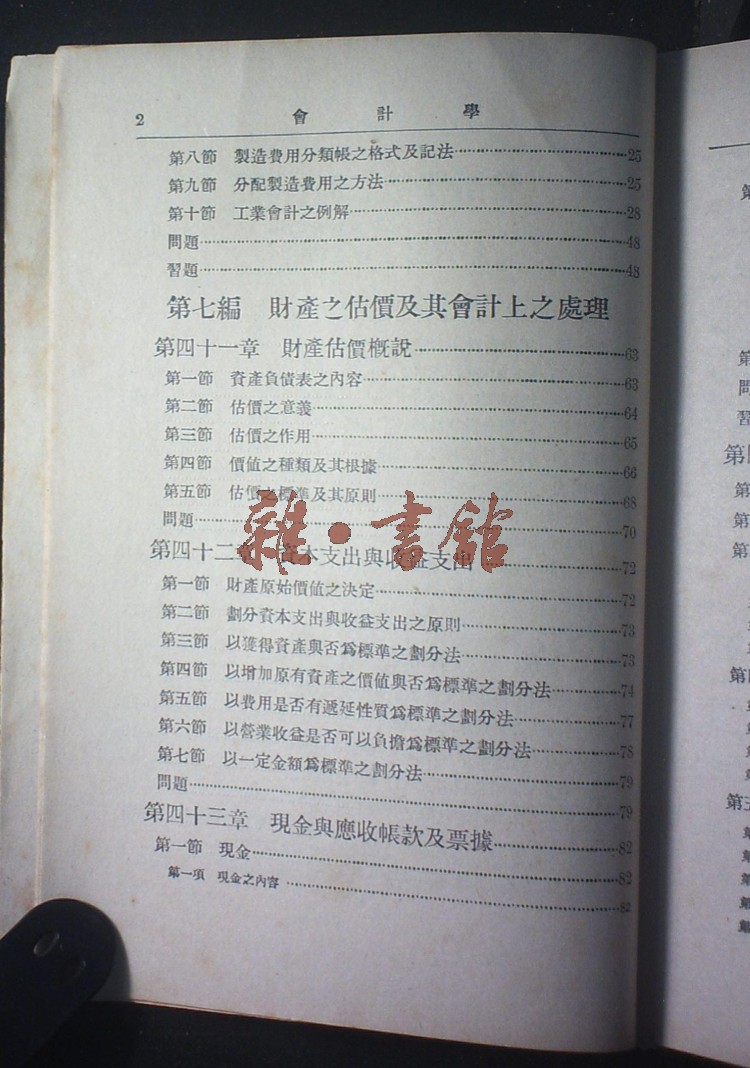 2 會計學
第八節 製造費用分類帳之格式及記法……25
第九節 分配製造費用之方法……25
第十節 工業會計之例解……28
問題……48
習題……48
第七編 財產之估價及其會計上之處理
第四十一章 財產估價概說……63
第一節 資產負債表之內容……63
第二節 估價之意義……64
第三節 估價之作用……65
第四節 價值之種類及其根據……66
第五節 估價之標準及其原則……68
問題……70
雜·書館
第四十二章 資本支出與收益支出……72
第一節 財產原始價值之決定……72
第二節 劃分資本支出與收益支出之原則……73
第三節 以獲得資產與否爲標準之劃分法……73
第四節 以增加原有資產之價值與否爲標準之劃分法……74
第五節 以費用是否有遞延性質爲標準之劃分法……77
第六節 以營業收益是否可以負擔爲標準之劃分法……78
第七節 以一定金額爲標準之劃分法……79
問題……79
第四十三章 現金與應收帳款及票據……82
第一節 現金……82
第一項 現金之內容……82